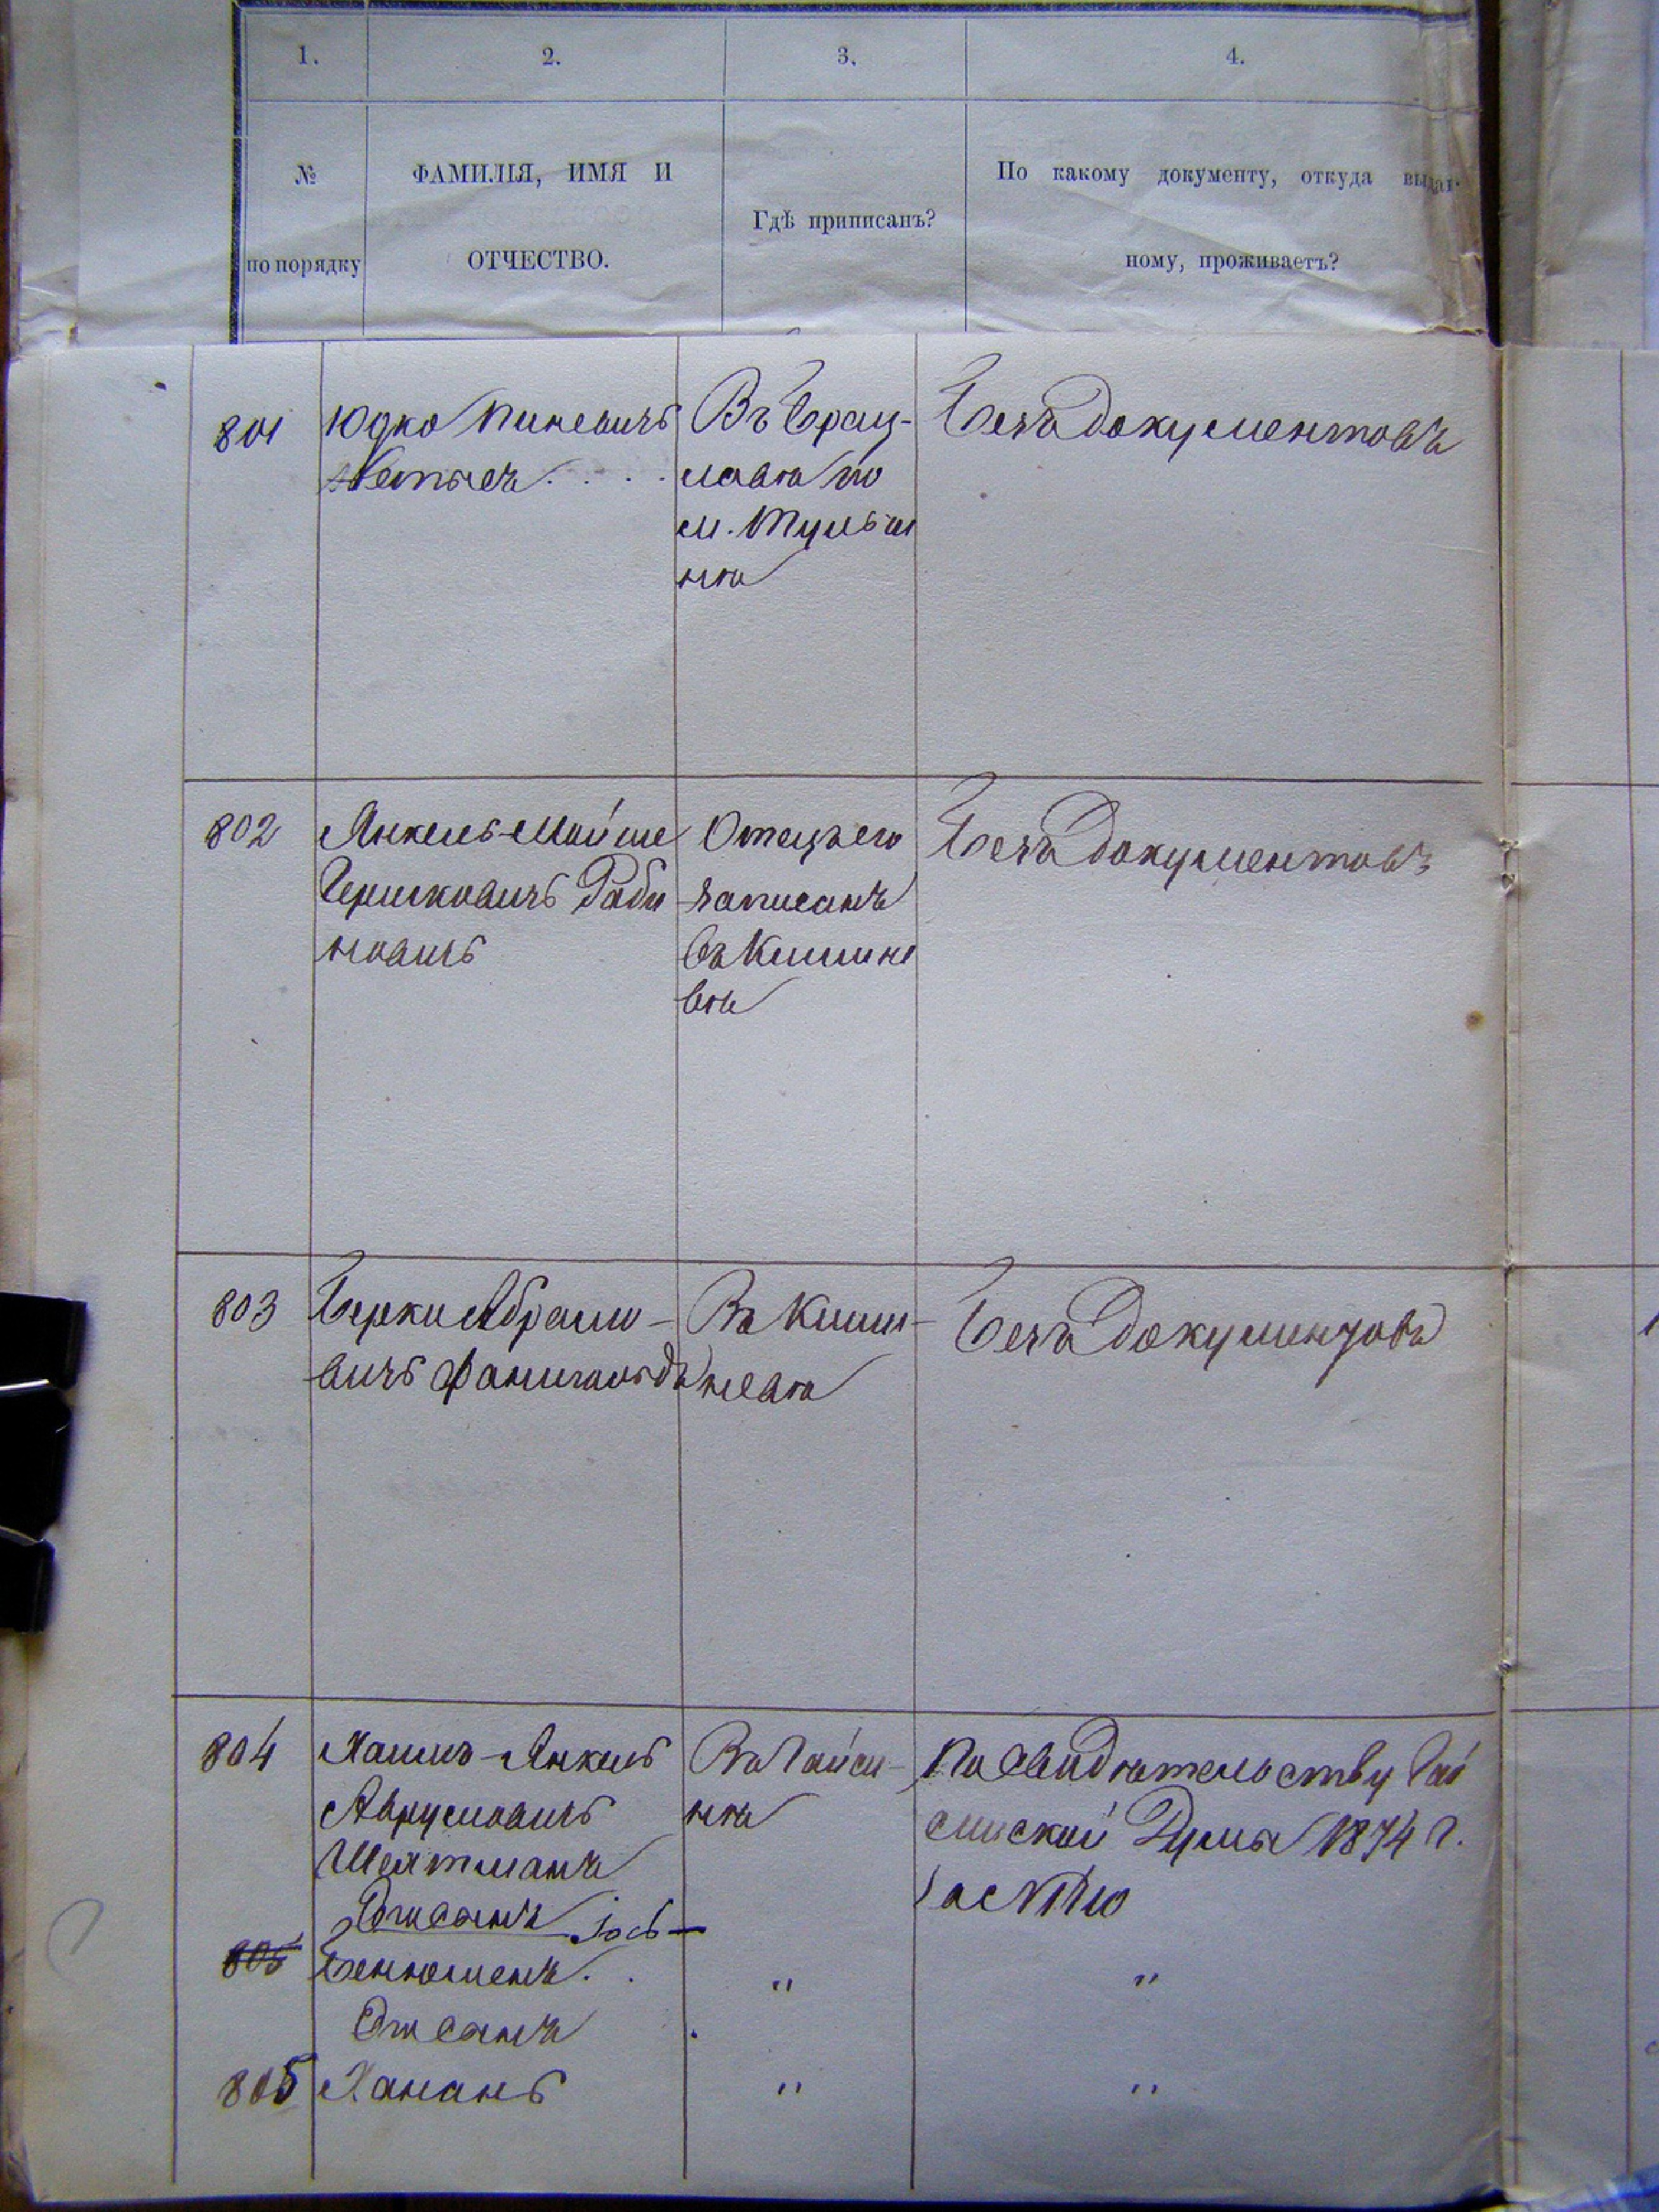 1.
2.
3.
4.
№
по порядку
ФАМИЛІЯ, ИМЯ И
ОТЧЕСТВО.
Гдѣ приписанъ?
По какому документу, откуда выдан-
ному, проживаетъ?
801
Юдко Пиневичъ
Въ Брац-
лавѣ по
м. Тульчи
нѣ
Безъ документовъ
802
Янкель-Мойше
Гершковичъ Раби
новичъ
Отецъ его
записанъ
въ Кишине
вѣ
Безъ документовъ
803
Берко Абрамо-
вичъ
Въ Киши-
невѣ
Безъ документовъ
804
Хаимъ-Янкель
Аврумовичъ
Шехтманъ
Въ Гайси-
нѣ
По свидѣтельству Гай
синской Думы 1874 г.
за №
805
Его сынъ Іось-
Бенюменъ
"
"
Его сынъ
805
Хананъ
"
"